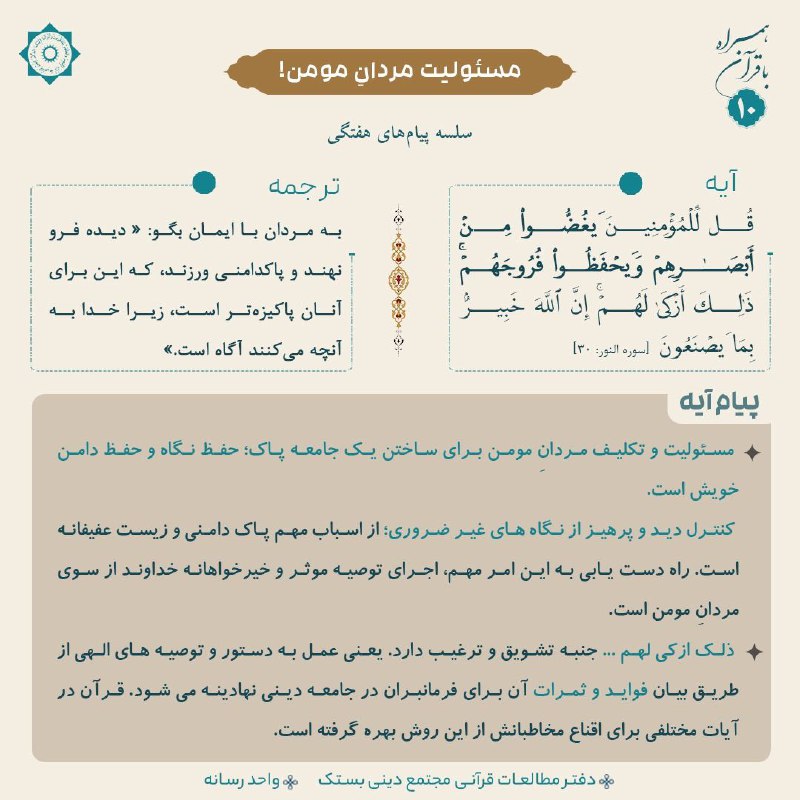 همراه
با قرآن
۱۰
مسئولیت مردانِ مومن!
سلسه پیام‌های هفتگی
آیه
قُل لِّلْمُؤْمِنِينَ يَغُضُّوا۟ مِنْ
أَبْصَـٰرِهِمْ وَيَحْفَظُوا۟ فُرُوجَهُمْ ۚ
ذَٰلِكَ أَزْكَىٰ لَهُمْ ۚ إِنَّ ٱللَّهَ خَبِيرٌۢ
بِمَا يَصْنَعُونَ [سوره النور: ۳۰]
ترجمه
به مردان با ایمان بگو: « دیده فرو
نهند و پاکدامنی ورزند، که این برای
آنان پاکیزه‌تر است، زیرا خدا به
آنچه می‌کنند آگاه است.»
پیام آیه
مسئولیت و تکلیف مردانِ مومن برای ساختن یک جامعه پاک؛ حفظ نگاه و حفظ دامن
خویش است.
کنترل دید و پرهیز از نگاه های غیر ضروری؛ از اسباب مهم پاک دامنی و زیست عفیفانه
است. راه دست یابی به این امر مهم، اجرای توصیه موثر و خیرخواهانه خداوند از سوی
مردانِ مومن است.
ذلک ازکی لهم ... جنبه تشویق و ترغیب دارد. یعنی عمل به دستور و توصیه های الهی از
طریق بیان فواید و ثمرات آن برای فرمانبران در جامعه دینی نهادینه می شود. قرآن در
آیات مختلفی برای اقناع مخاطبانش از این روش بهره گرفته است.
دفتر مطالعات قرآنی مجتمع دینی بستک واحد رسانه